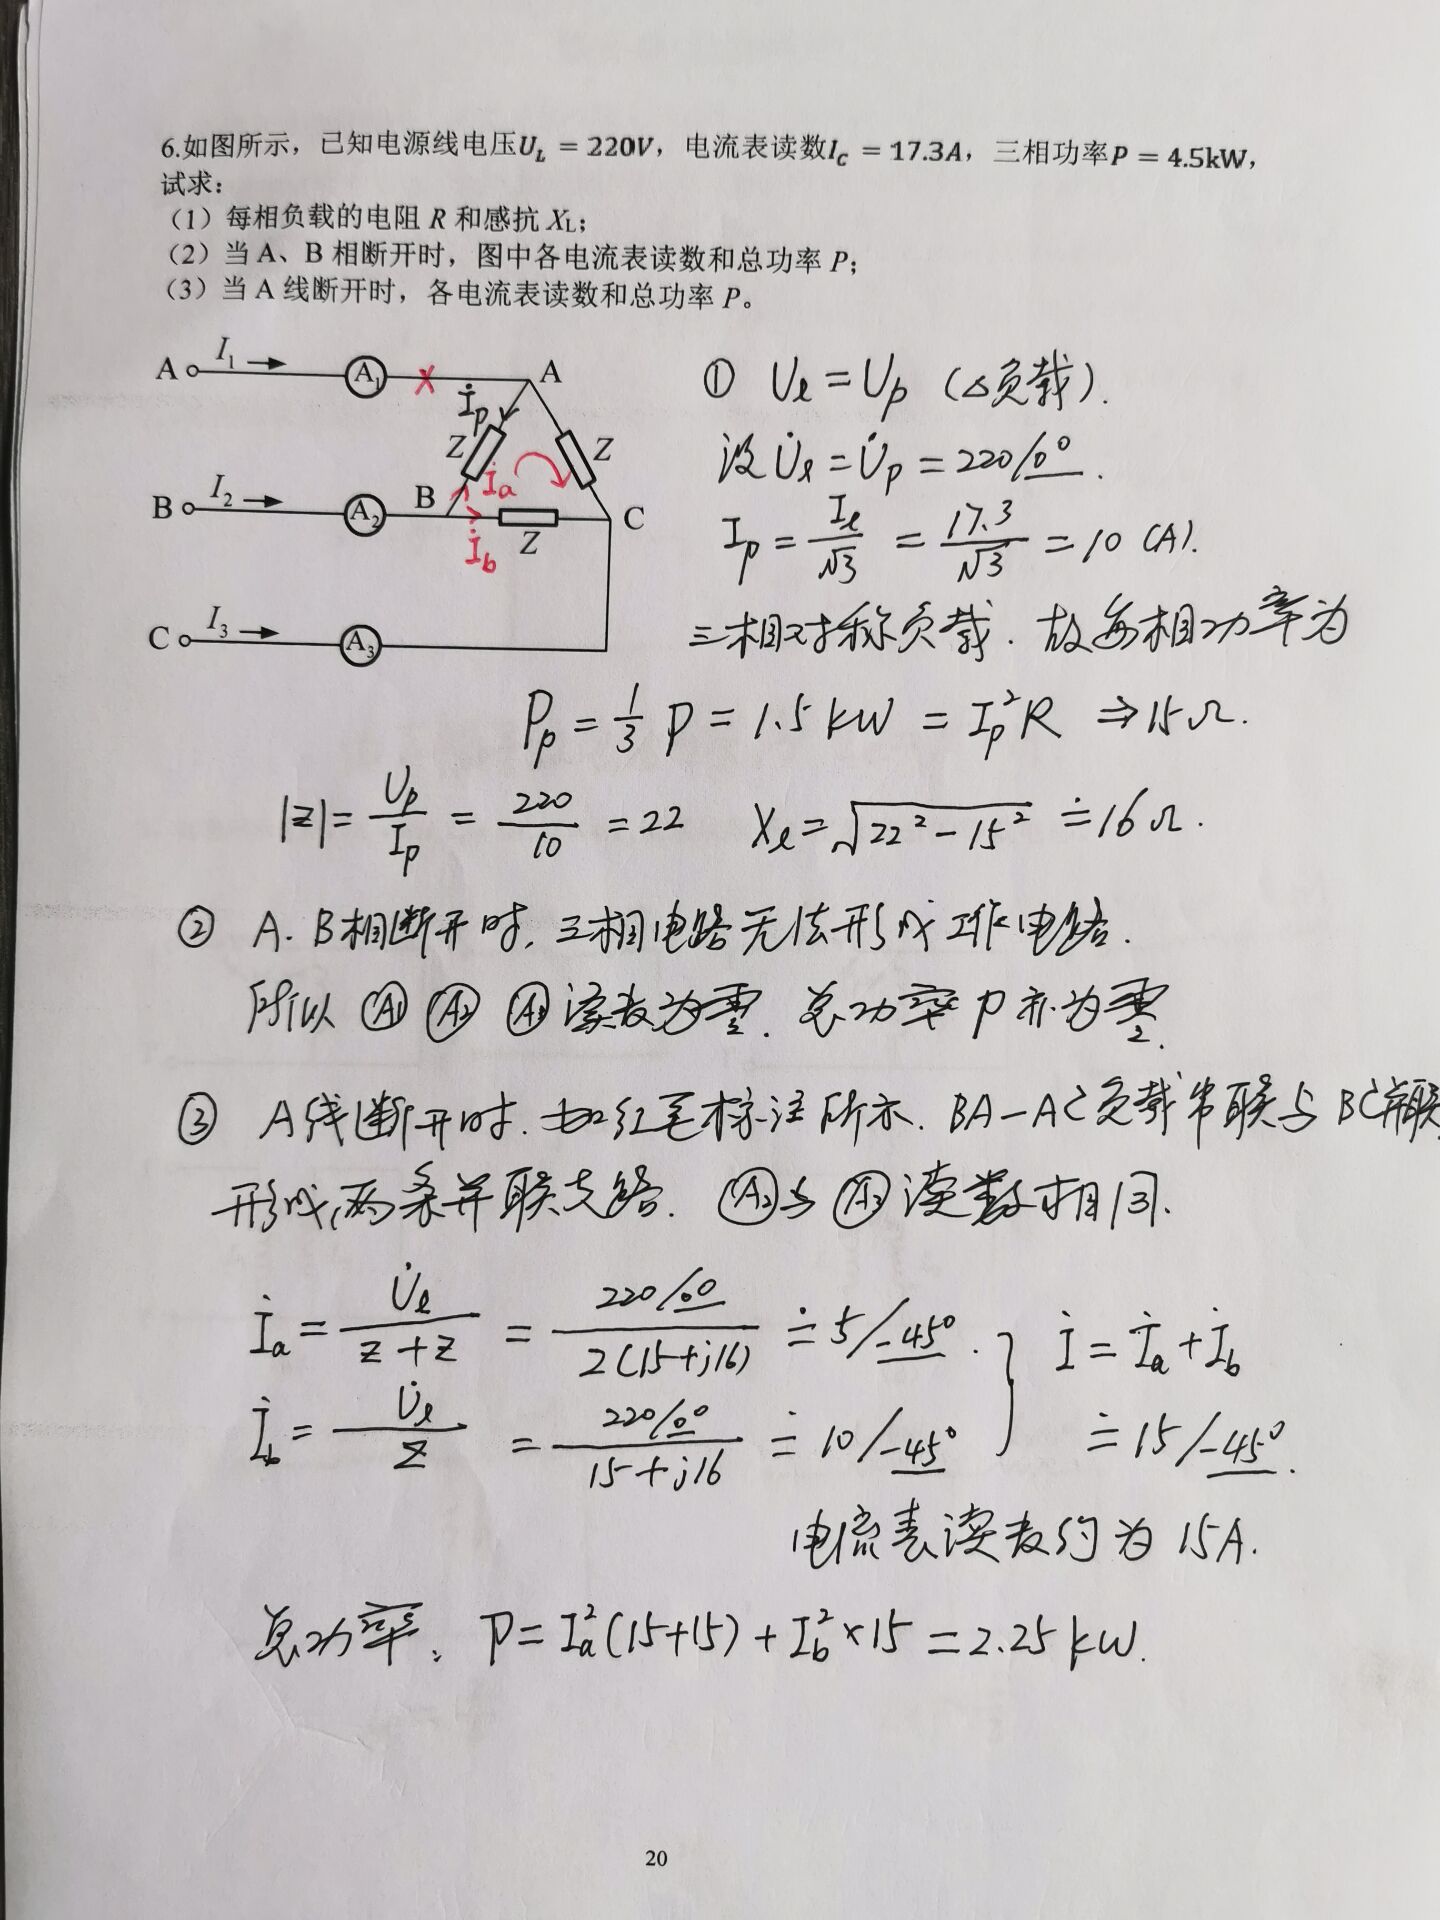 6.如图所示，已知电源线电压U_L = 220V，电流表读数I_C = 17.3A，三相功率P = 4.5kW，
试求：
（1）每相负载的电阻 R 和感抗 X_L；
（2）当 A、B 相断开时，图中各电流表读数和总功率 P；
（3）当 A 线断开时，各电流表读数和总功率 P。
A I₁ A₁ × A
İp
Z Z
İa
B I₂ A₂ B C
İb Z
C I₃ A₃
① Ul = Up（△负载）.
设 U̇l = U̇p = 220∠0°.
Ip = Il/√3 = 17.3/√3 = 10 (A).
三相对称负载. 故每相功率为
Pp = 1/3 P = 1.5 kW = Ip²R ⇒ 15Ω.
|Z| = Up/Ip = 220/10 = 22 Xl = √(22² - 15²) ≐ 16Ω.
② A. B相断开时, 三相电路无法形成工作电路.
所以 A₁ A₂ A₃ 读数为零. 总功率 P 亦为零.
③ A线断开时. 如红笔标注所示. BA-AC负载串联与BC并联
形成两条并联支路. A₂与A₃读数相同.
İa = U̇l/(Z+Z) = 220∠0°/2(15+j16) ≐ 5∠-45°. } İ = İa + İb
İb = U̇l/Z = 220∠0°/(15+j16) ≐ 10∠-45° ≐ 15∠-45°.
电流表读数约为 15A.
总功率: P = Ia²(15+15) + Ib²×15 = 2.25 kW.
20